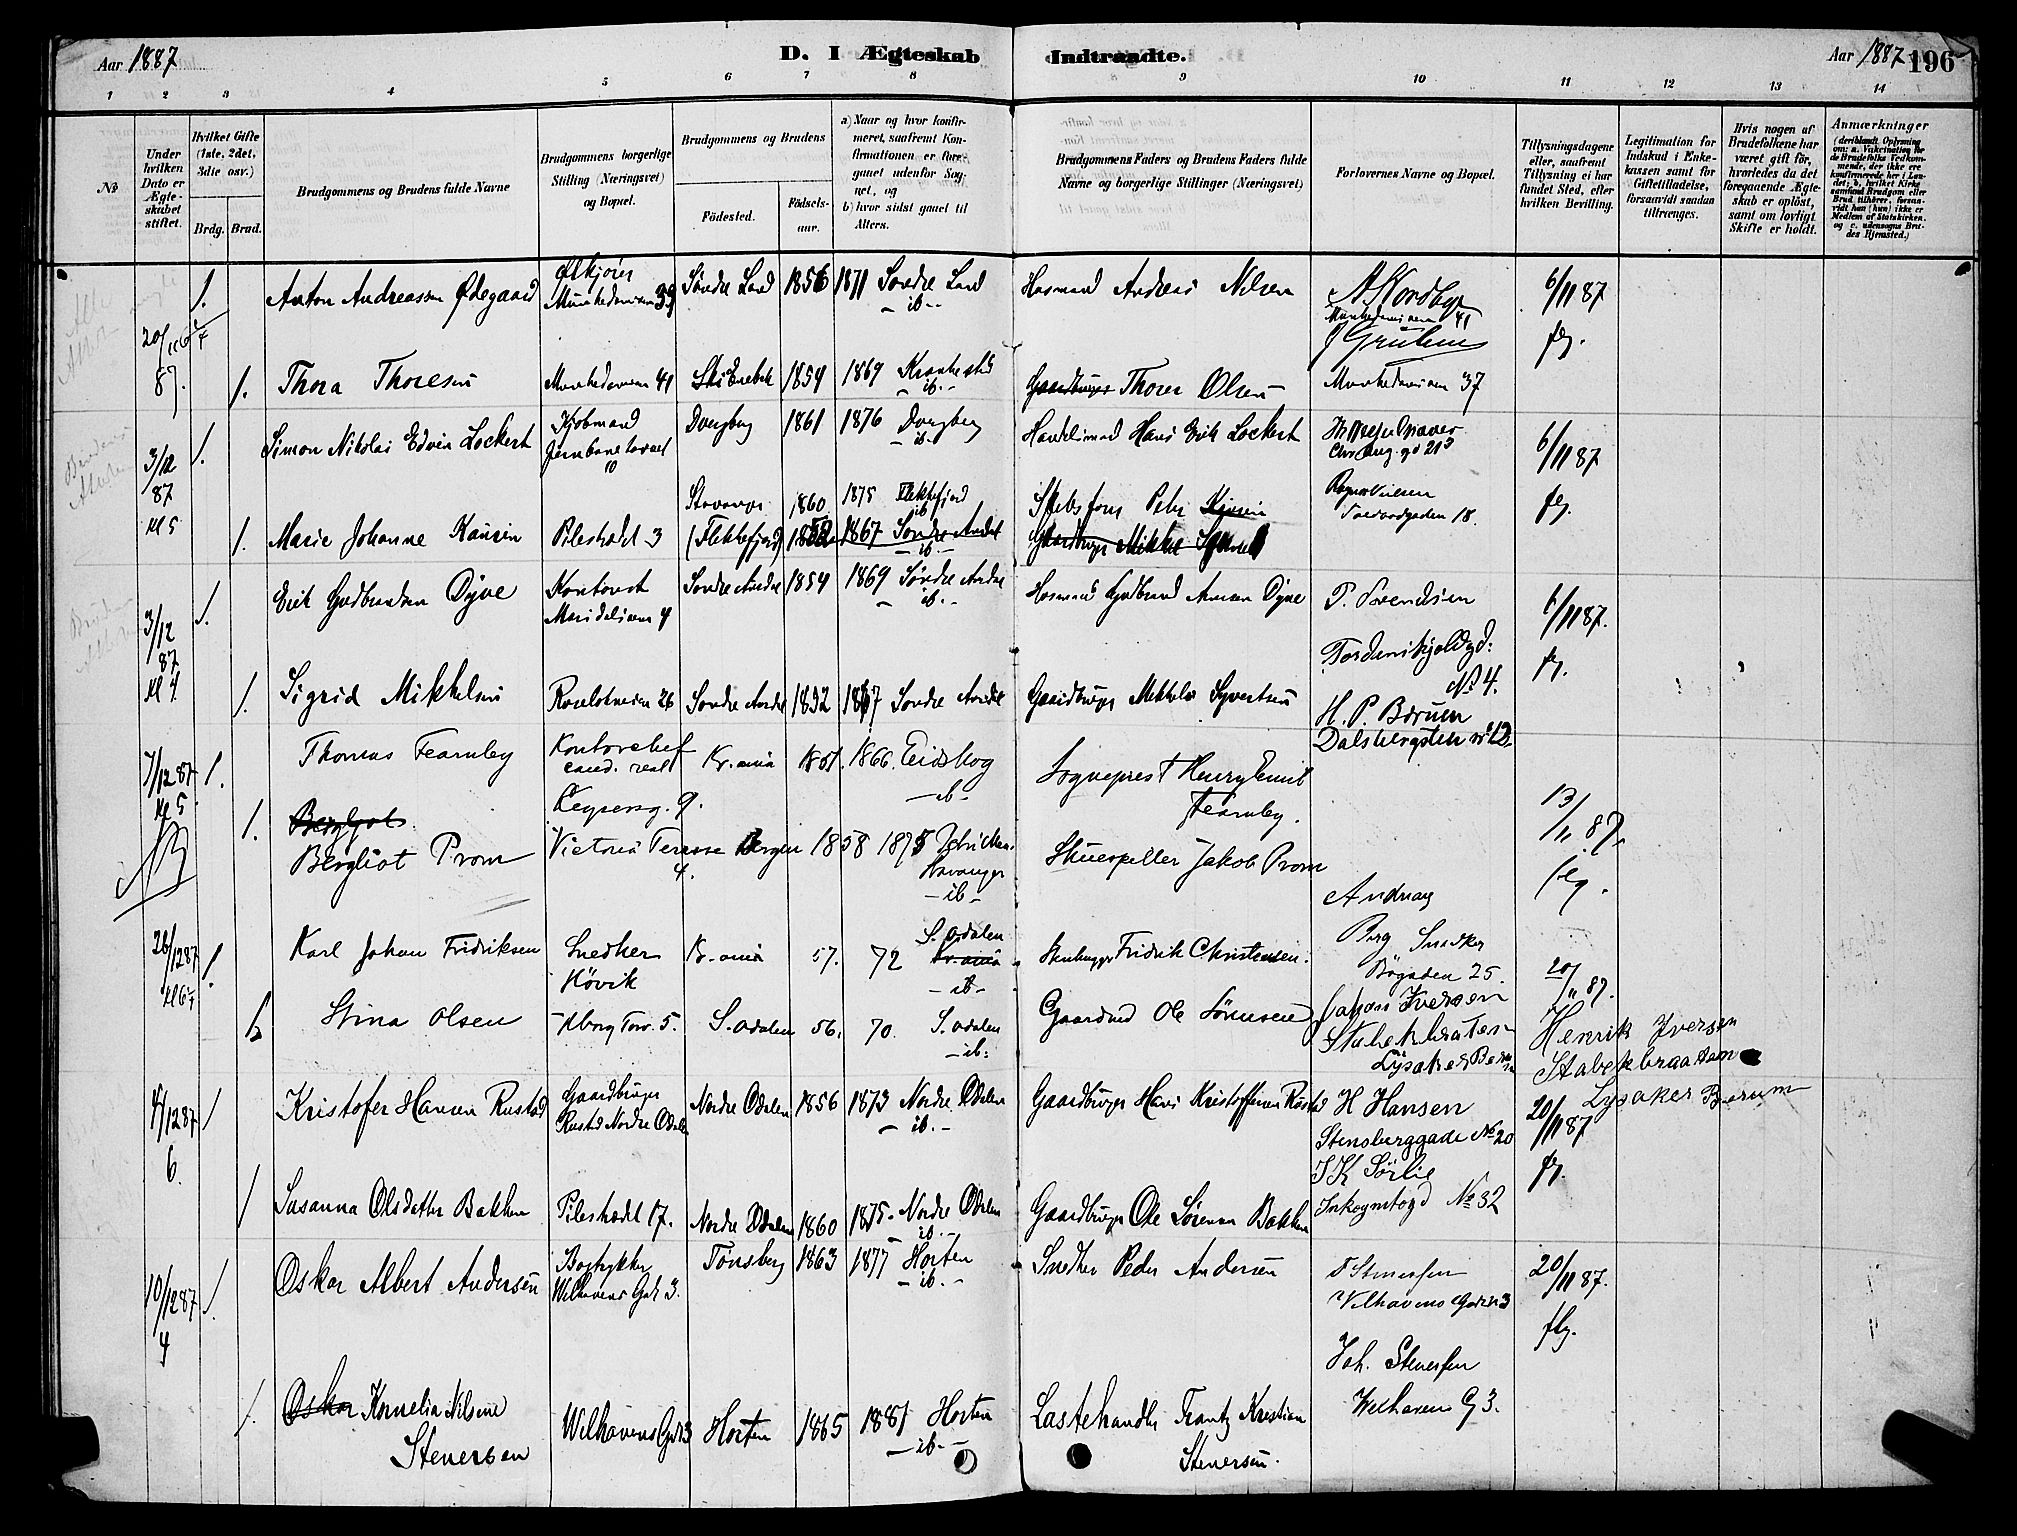 Aar 1887
D. I Ægteskab Indtraadte.
Aar 1887 196
1 2 3 4 5 6 7 8 9 10 11 12 13 14
No
Under hvilken Dato er Ægteskabet stiftet.
Hvilket Gifte (1ste, 2det, 3die osv.)
Brdg. Brud.
Brudgommens og Brudens fulde Navne
Brudgommens borgerlige Stilling (Næringsvei) og Bopæl.
Brudgommens og Brudens
Födested.
Födsels-aar.
a) Naar og hvor konfirmeret, saafremt Konfirmationen er foregaaet udenfor Sognet, og
b) hvor sidst gaaet til Alters.
Brudgommens Faders og Brudens Faders fulde Navne og borgerlige Stillinger (Næringsvei)
Forlovernes Navne og Bopæl.
Tillysningsdagene eller, saafremt Tillysning ei har fundet Sted, efter hvilken Bevilling.
Legitimation for Indskud i Enkekassen samt for Giftetilladelse, forsaavidt saadan tiltrænges.
Hvis nogen af Brudefolkene har været gift för, hvorledes da det foregaaende Ægteskab er oplöst, samt om lovligt Skifte er holdt.
Anmærkninger
20/11 87. 1. Anton Andreassen Ødegaard
Munkedamsveien 39 Søndre Land 1856 1871 Søndre Land
- ib. -
Husmand Andreas Nilsen
A Nordbye
Munkedamsveien 41
6/11 87
fg.
1. Thora Thoresen Munkedamsveien 41 1854 1869 Kraakstad
- ib. -
Gaardbruger Thorer Olsen
Munkedamsveien 37
3/12 87 Kl 5 1. Simon Nikolai Edvin Lockert
Kjøbmand
Jernbanetorvet 10
Dverberg 1861 1876 Dverberg
- ib. -
Handelsmand Hans Erik Lockert
Chr Aug. gd 21
6/11 87
fg.
Stavanger 1860 1875 Flekkefjord
ib
1. Marie Johanne Pilestrædet 3 (Flekkefjord) 1867 Søndre Aurdal
- ib. -
Peter
Gaardbruger Mikkel
3/12 87 Kl 4 1. Erik Gudbrandsen Dyve
Kontorist
Maridalsveien 4
Søndre Aurdal 1854 1869 Søndre Aurdal
- ib. -
Husmand Gudbrand Arnesen Dyve
P. Svendsen
Tordenskjoldgd:
No 4.
6/11 87.
fg.
1. Sigrid Mikkelsen Søndre Aurdal 1852 1867 Søndre Aurdal
Gaardbruger Mikkels Syvertsen
H. P. Bærum
Dalsbergsten No 12.
7/12 87 Kl 5. 1. Thomas Fearnley
Kontorchef
cand. real
Keysersg. 9.
Kr.ania 1851. 1866. Eidskog
- ib -
Sogneprest Henry Emil
Fearnley.
13/11 87.
flg.
NB
1. Bergljot
Bergliot Prom
Victoria Terasse 4. Bergen 1858 1875
Stavanger
- ib -
Skuespiller Jakob Prom
26/12 87 1. Karl Johan Fridriksen
Snedker
Høvik
Kr.ania 57. 72 S. Odalen
Kr.ania
- ib -
Stenhugger Fridrik Christensen.
Andreas
Berg Snedker
Bøgaden 25.
20/11 87.
Stina Olsen Torv. 5. S. Odalen 56. 70. S. Odalen
- ib.
Gaardmd Ole Sørensen
Johan Iversen
Stabekbraaten
Lysaker Bærum
Henrik Iversen
Stabekbraaten
Lysaker Bærum
1 Kristofer Hansen Rustad
Gaardbruger
Rustad Nordre Odalen
Nordre Odalen 1856 1873 Nordre Odalen
- ib. -
Gaardbruger Hans Kristoffersen Rustad
H Hansen
Stensberggade No 20
20/11 87
fg.
1 Susanna Olsdatter Bakken Pilestrædet 17. Nordre Odalen 1860 1875. Nordre Odalen
- ib. -
Gaardbruger Ole Sørensen Bakken
J K Sörlie
Inkognitogd No 32
10/12 87 4 1. Oskar Albert Andersen
Bogtrykker
Welhavens Gade 3.
Tønsberg 1863 1877 Horten
- ib. -
Snedker Peder Andersen
Stenersen
Velhavens Gade 3
20/11 87.
flg.
1. Oskar Kornelia Nilsine
Stenersen
Welhavens Gd 3 Horten 1865 1881 Horten
- ib. -
Lastehandler Frantz Kristian
Stenersen.
Joh. Stenersen
Welhavens G 3.